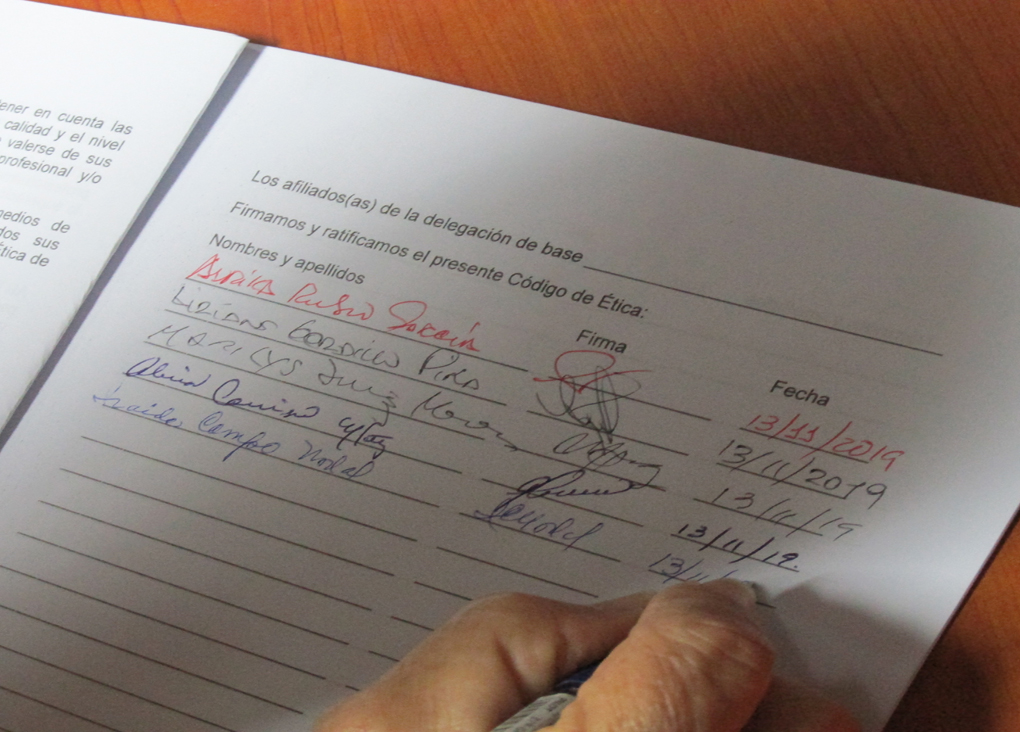 ener en cuenta las
calidad y el nivel
valerse de sus
profesional y/o
medios de
dos sus
Ética de
Los afiliados(as) de la delegación de base
Firmamos y ratificamos el presente Código de Ética:
Nombres y apellidos Firma Fecha
Rubio García 13/11/2019
Liziana Gordillo Piña 13/11/2019
MARILYS 13/11/19
13/11/19.
Campo Nodal 13/11/